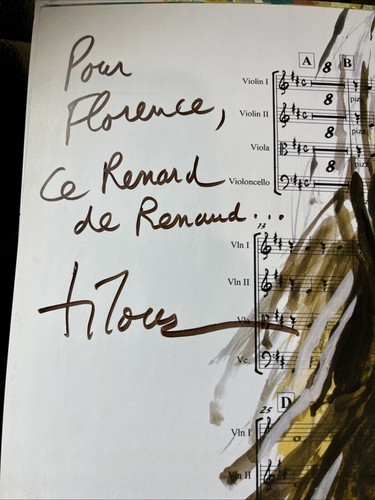 Pour
Florence,
Ce Renard
de Renaud...
titouan
A 8 B
Violin I
8
Violin II
pizz
8
Viola
8
Violoncello
13
Vln I
Vln II
Vla
Vc.
25 D
Vln I
Vln II